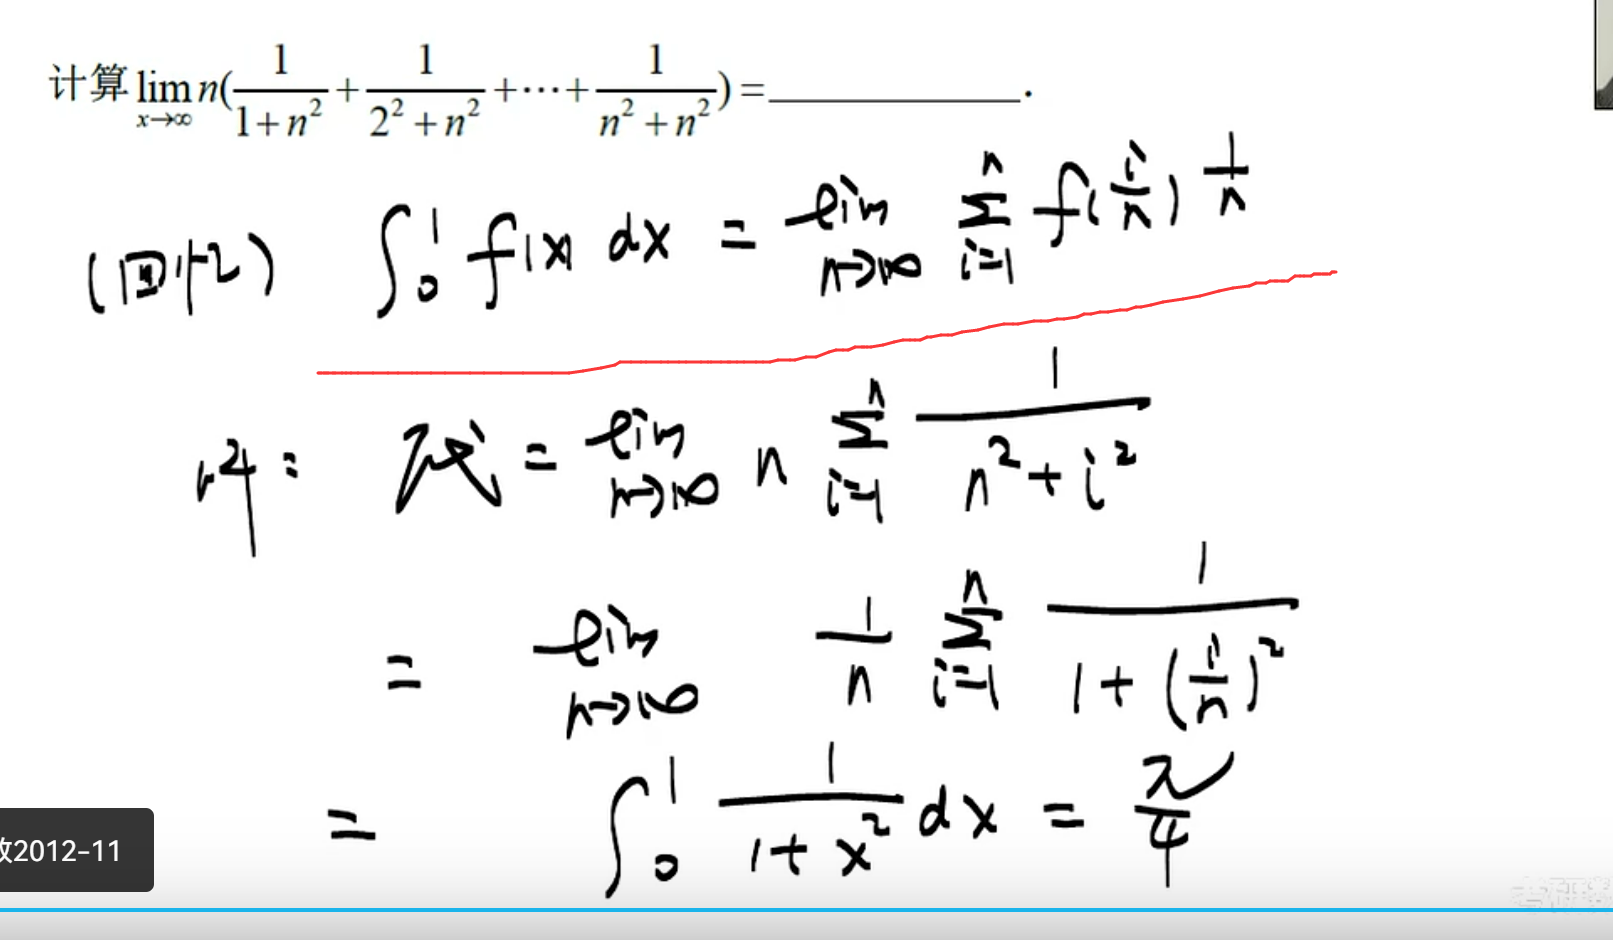 计算 lim x→∞ n( 1/(1+n²) + 1/(2²+n²) +⋯+ 1/(n²+n²) ) = ____________ .
(回忆) ∫₀¹ f(x) dx = lim n→∞ Σ i=1 n f(i/n) 1/n
解: 原式 = lim n→∞ n Σ i=1 n 1/(n²+i²)
= lim n→∞ 1/n Σ i=1 n 1/(1+(i/n)²)
= ∫₀¹ 1/(1+x²) dx = π/4
2012-11
考研数